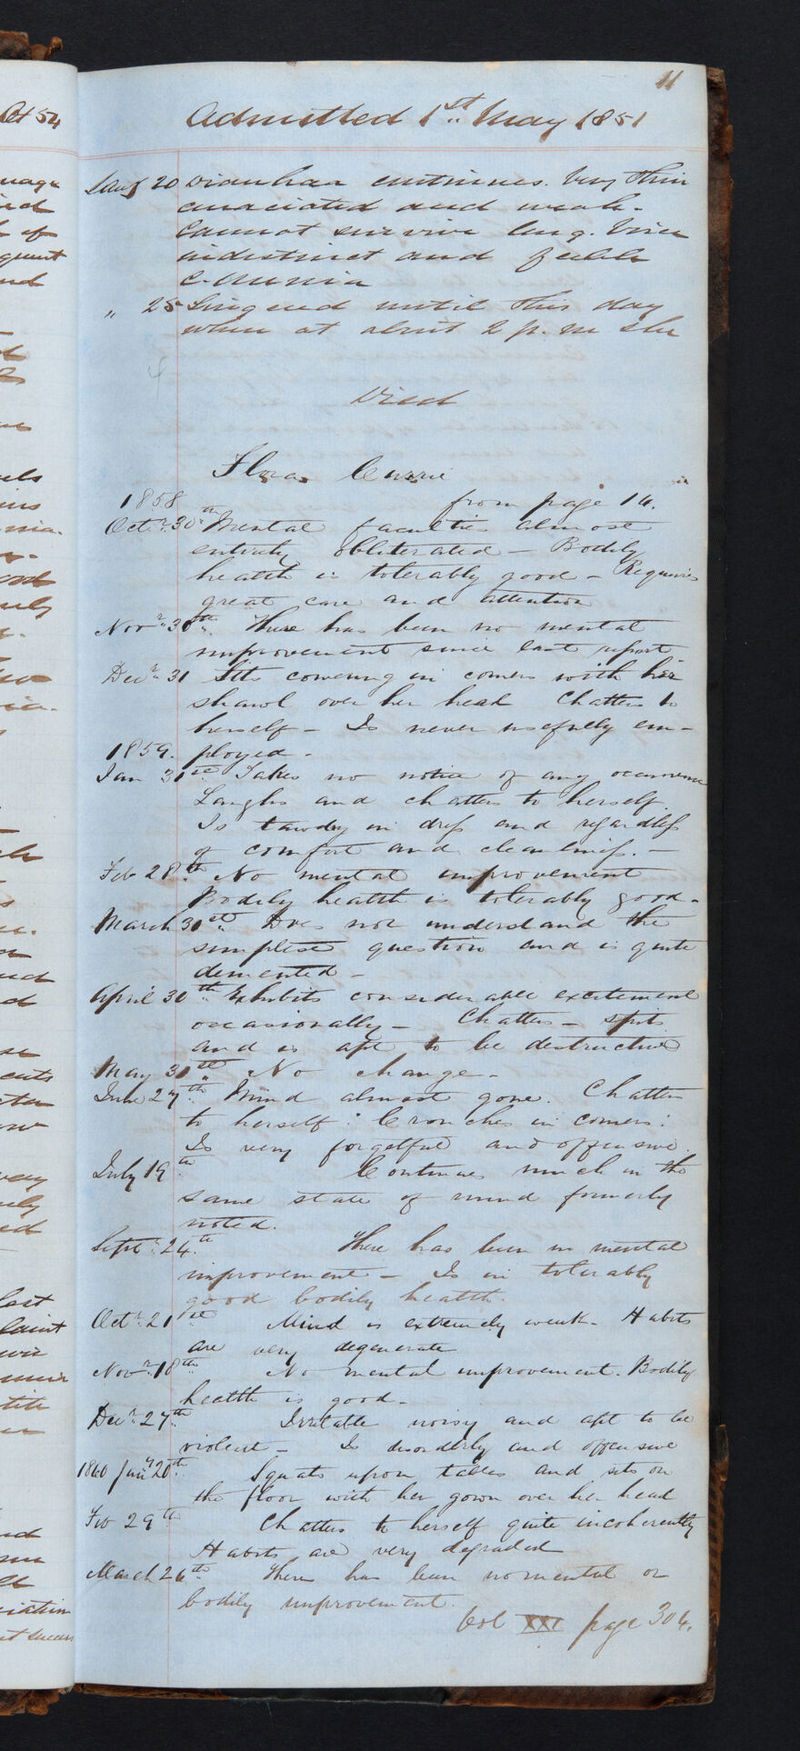 11
Admitted 1st May 1851
20 Diarrhœa continues. Very thin
emaciated and weak.
Cannot survive long. Voice
indistinct and feeble
" 25 Lingered until this day
when at about 2 p.m she
Died
Flora Currie
1858 from page 14.
Octr. 30th Mental faculties almost
entirely obliterated — Bodily
health is tolerably good — Requires
great care and attention
Novr 30th. There has been no mental
improvement since last report
Decr. 31 Sits cowering in corners with her
shawl over her head Chatters to
herself — Is never usefully em-
1859. ployed.
Jan 31st Takes no notice of any occurrence
Laughs and chatters to herself.
Is tawdry in dress and regardless
of comfort and cleanliness. —
Feb 28th No mental improvement
Bodily health is tolerably good.
March 31st Does not understand the
simplest question and is quite
demented —
April 30th Exhibits considerable excitement
occasionally — Chatters — spits
and is apt to be destructive
May 31st No change.
June 27th Mind almost gone. Chatters
to herself: Crouches in corners:
Is very forgetful and offensive.
July 19th Continues much in the
same state of mind formerly
noted.
Septr. 24th There has been no mental
improvement — Is in tolerably
good bodily health.
Octr. 21st Mind is extremely weak. Habits
are very degenerate
Novr. 18th No mental improvement. Bodily
health is good.
Decr. 27th Irritable noisy and apt to be
violent — Is disorderly and offensive
1860 Jany 20th Squats upon tables and sits on
the floor with her gown over her head
Feb 29th Chatters to herself quite incoherently
Habits are very degraded
March 26th There has been no mental or
bodily improvement.
Vol XXI page 304.